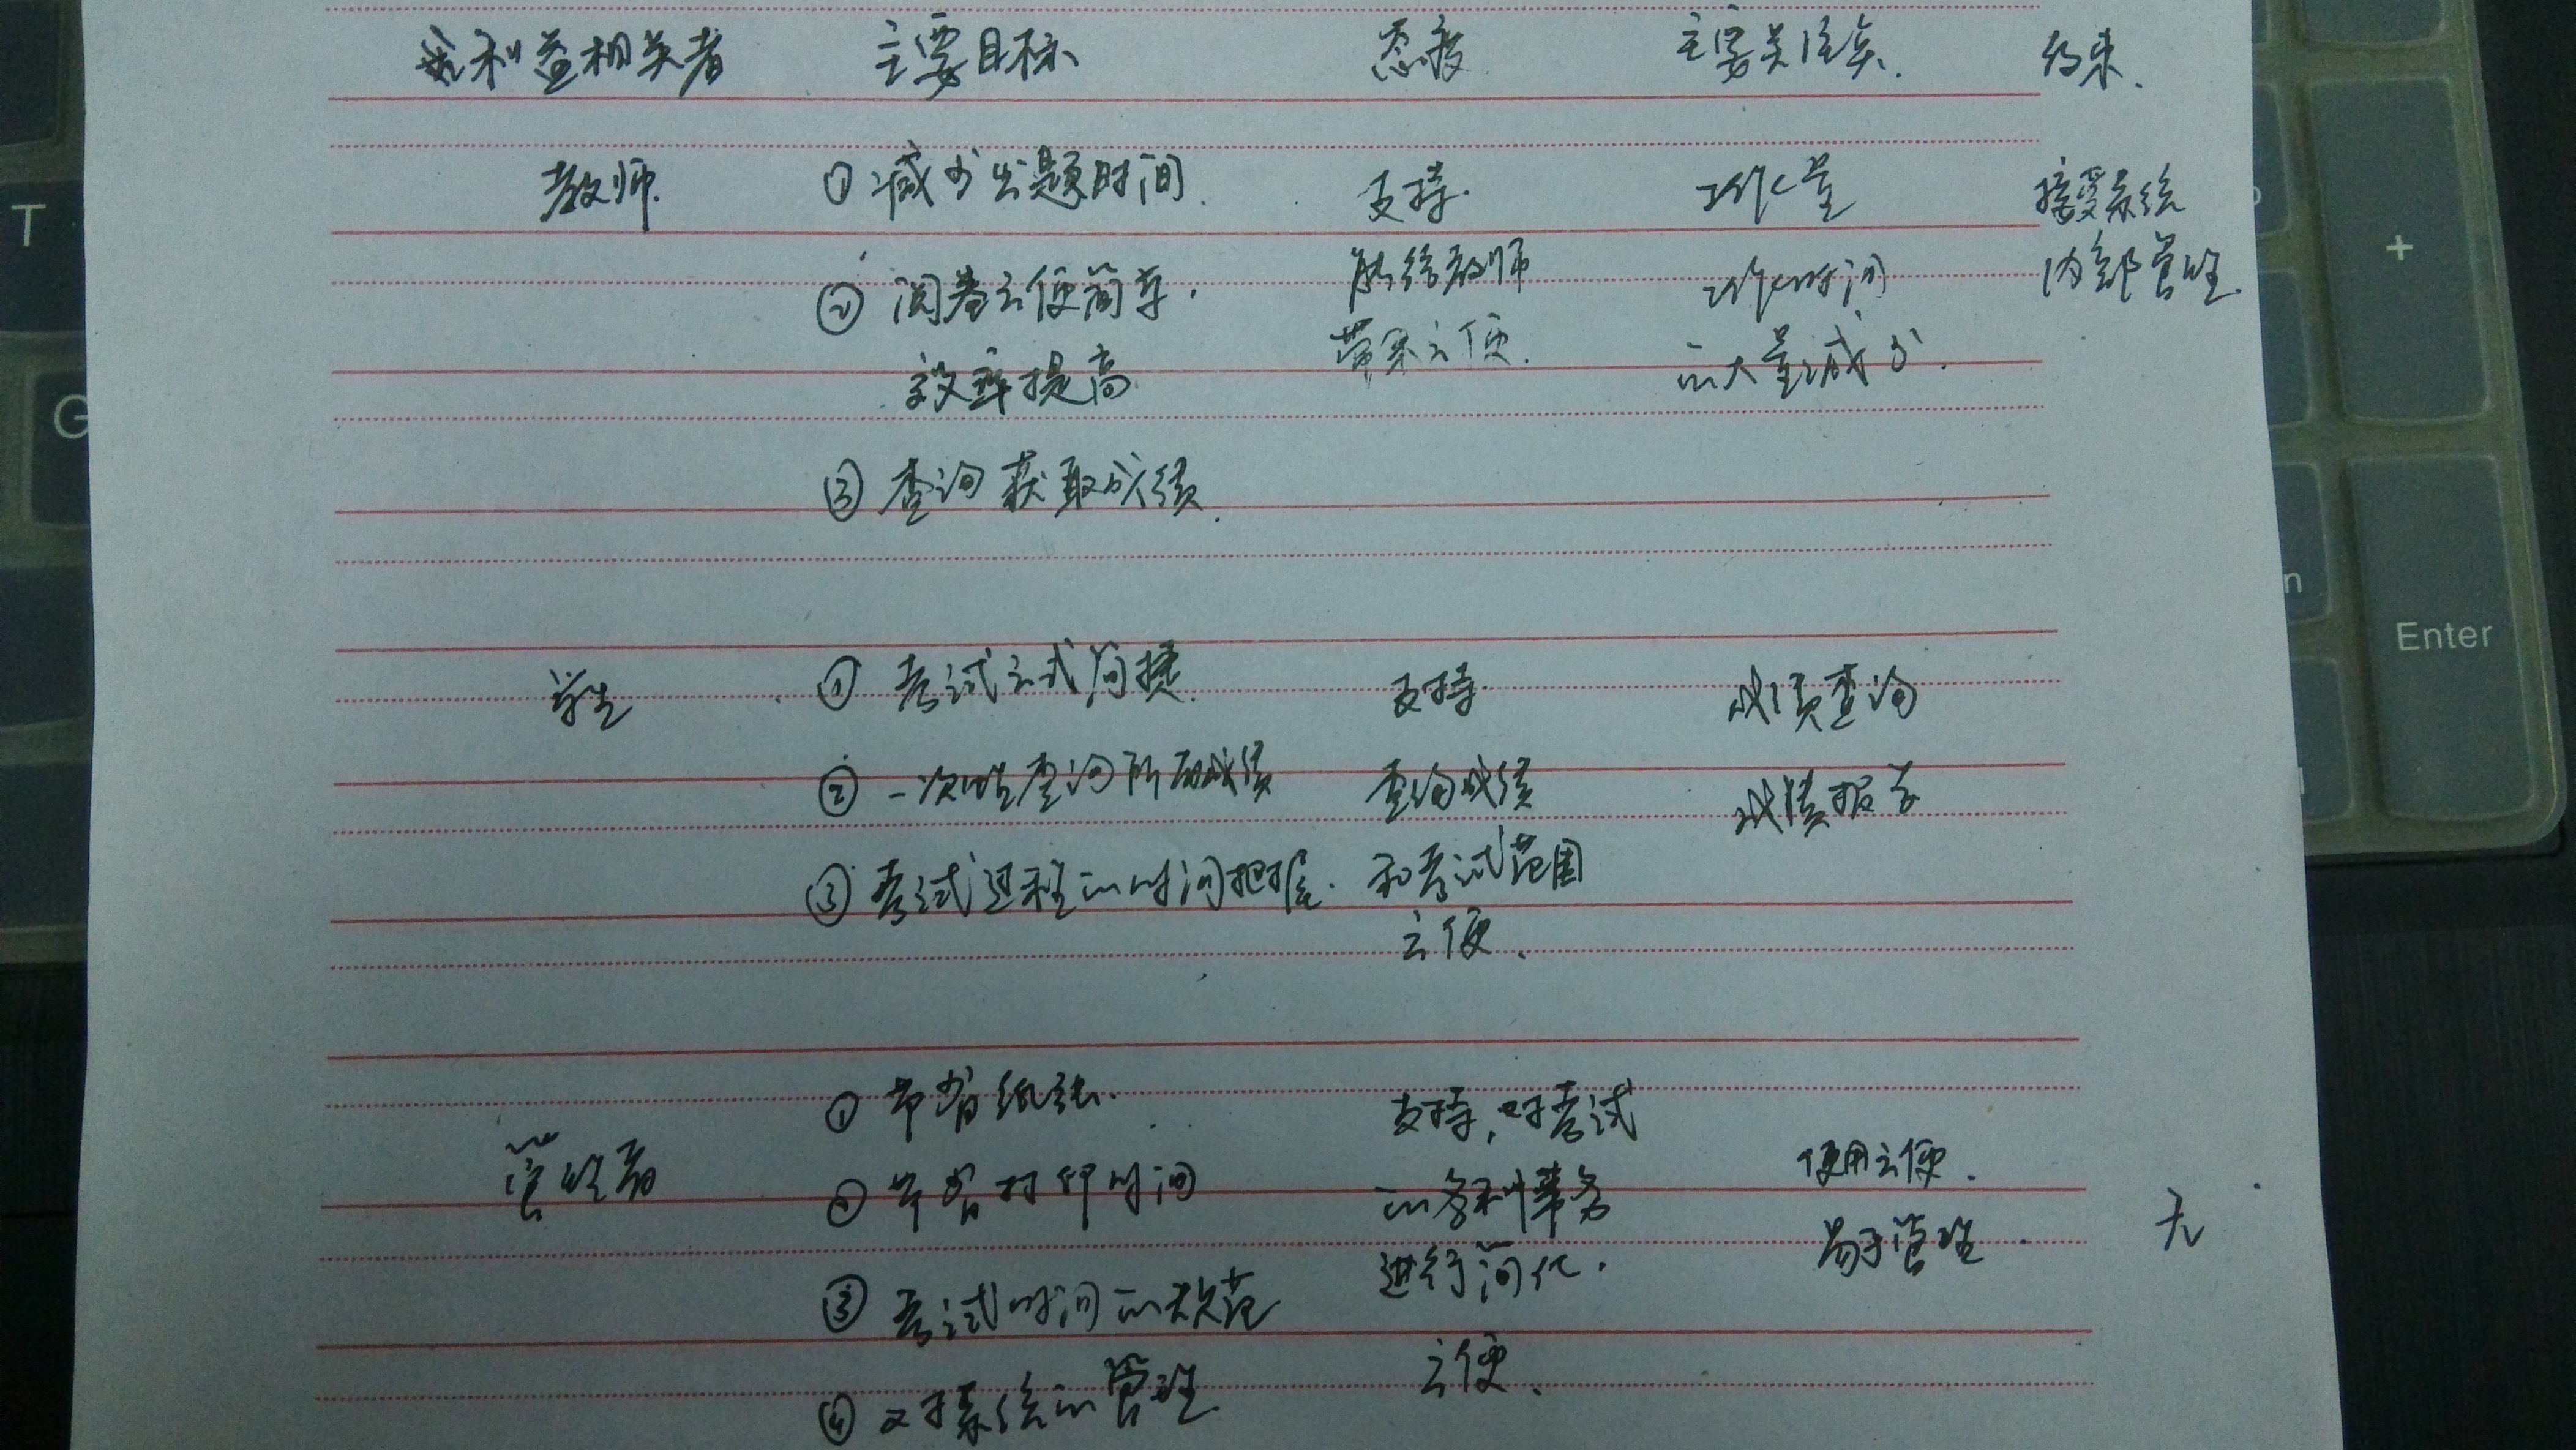 利益相关者 主要目标 态度 主要关注点 约束
教师 ①减少出题时间 支持 工作量 接受系统
②阅卷方便简单 能给教师 工作时间 内部管理
效率提高 带来方便 的大量减少
③查询获取成绩
学生 ①考试方式简捷 支持 成绩查询
②一次性查询所有成绩 查询成绩 成绩报告
③考试过程的时间把握 和考试范围
方便
①节省纸张 支持，对考试
管理者 ②节省打印时间 的各种事务 使用方便
③考试时间的规范 进行简化 易于管理 无
④对系统的管理 方便
T
G
+
Enter
n